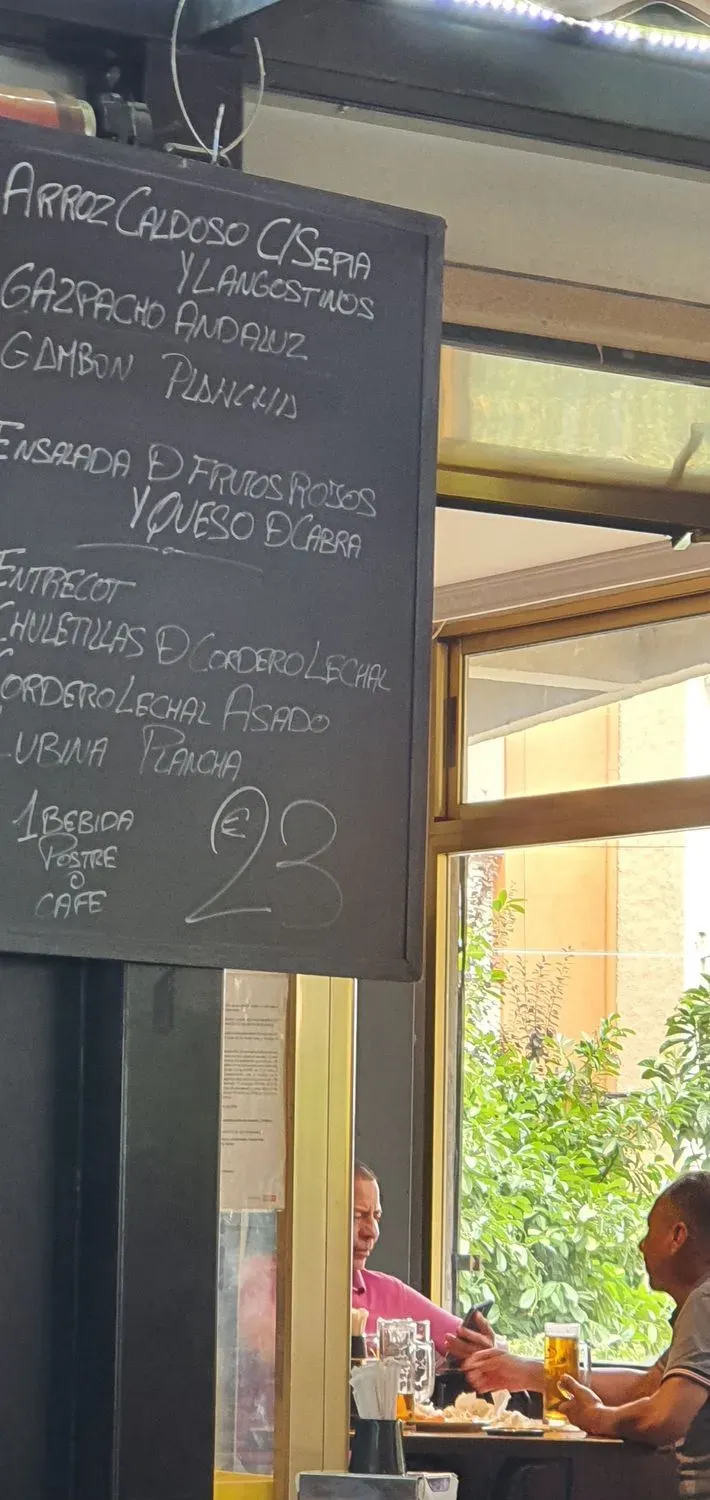 ARROZ CALDOSO C/SEPIA
Y LANGOSTINOS
GAZPACHO ANDALUZ
GAMBON PLANCHA
ENSALADA D FRUTOS ROJOS
Y QUESO D CABRA
ENTRECOT
CHULETILLAS D CORDERO LECHAL
CORDERO LECHAL ASADO
LUBINA PLANCHA
1 BEBIDA
POSTRE
O
CAFE
€23